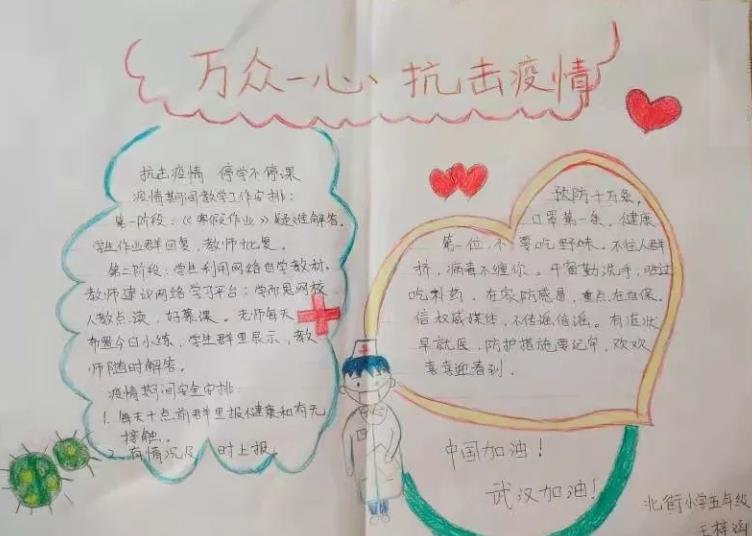 万众一心、抗击疫情
抗击疫情 停学不停课
疫情期间教学工作安排：
第一阶段：《寒假作业》疑难解答。
学生作业群回复，教师批复。
第二阶段：学生利用网络自学教材。
教师建议网络学习平台：学而思网校
人教点读，好慕课。老师每天
布置今日小练，学生群里展示，教
师随时解答。
疫情期间安全安排
1. 每天十点前群里报健康和有无
接触。
2. 有情况及时上报。
预防千万条，
口罩第一条，健康
第一位，不要吃野味，不往人群
挤，病毒不缠你。开窗勤洗手，
吃
药，在家防感冒，重点在自保。
信权威媒体，不传谣信谣。有症状
早就医，防护措施要记牢，欢欢
喜喜迎春到．
中国加油！
武汉加油！
北街小学五年级
王梓涵